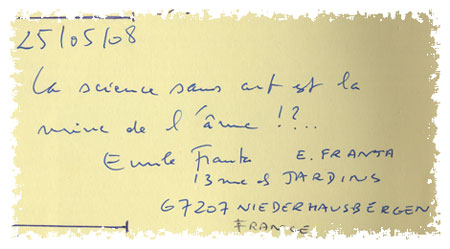 25/05/08
La science sans art est la
ruine de l'âme !?...
Emile Franta E. FRANTA
13 rue des JARDINS
67207 NIEDERHAUSBERGEN
FRANCE